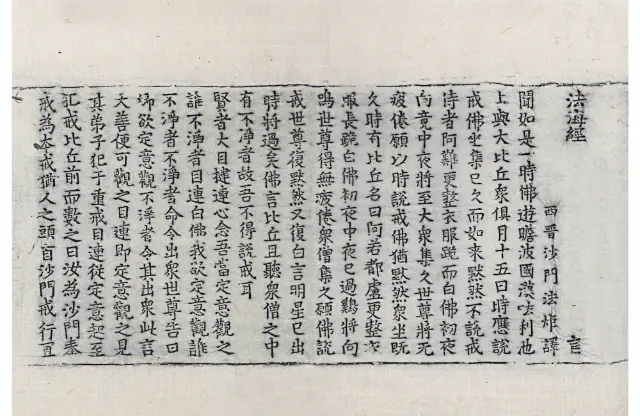 法海經 言
西晉沙門法炬譯
聞如是一時佛遊瞻波國漢呿利池
上與大比丘衆俱月十五日時應說
戒佛坐集已久而如來黙然不說戒
侍者阿難更整衣服跪而白佛初夜
向竟中夜將至大衆集久世尊將无
疲倦願以時說戒佛猶黙然衆坐旣
久時有比丘名曰阿若都盧更整衣
服長跪白佛初夜中夜已過鷄將向
鳴世尊得無疲倦衆僧集久願佛說
戒世尊復黙然又復白言明星已出
時將過矣佛言比丘且聽衆僧之中
有不淨者故吾不得說戒耳
賢者大目揵連心念吾當定意觀之
誰不淨者目連白佛我欲定意觀誰
不淨者不淨者命令出衆世尊告曰
卿欲定意觀不淨者令其出衆此言
大善便可觀之目連即定意觀之見
其弟子犯于重戒目連從定意起至
犯戒比丘前而數之曰汝為沙門奉
戒為本戒猶人之頭首沙門戒行宜